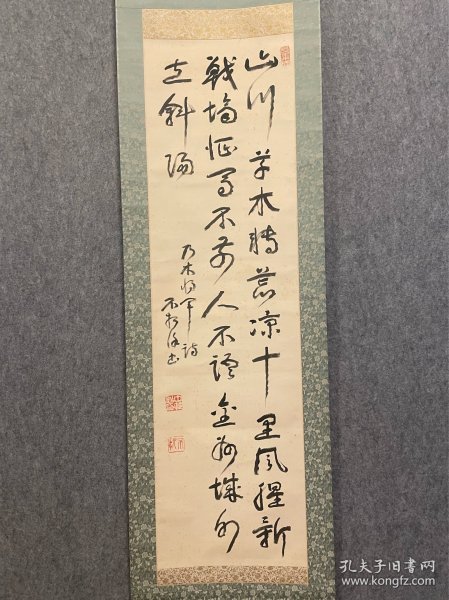 山川草木轉荒涼十里風腥新
戰場征馬不前人不語金州城外
立斜陽
乃木将軍詩
書
孔夫子旧书网
www.kongfz.com